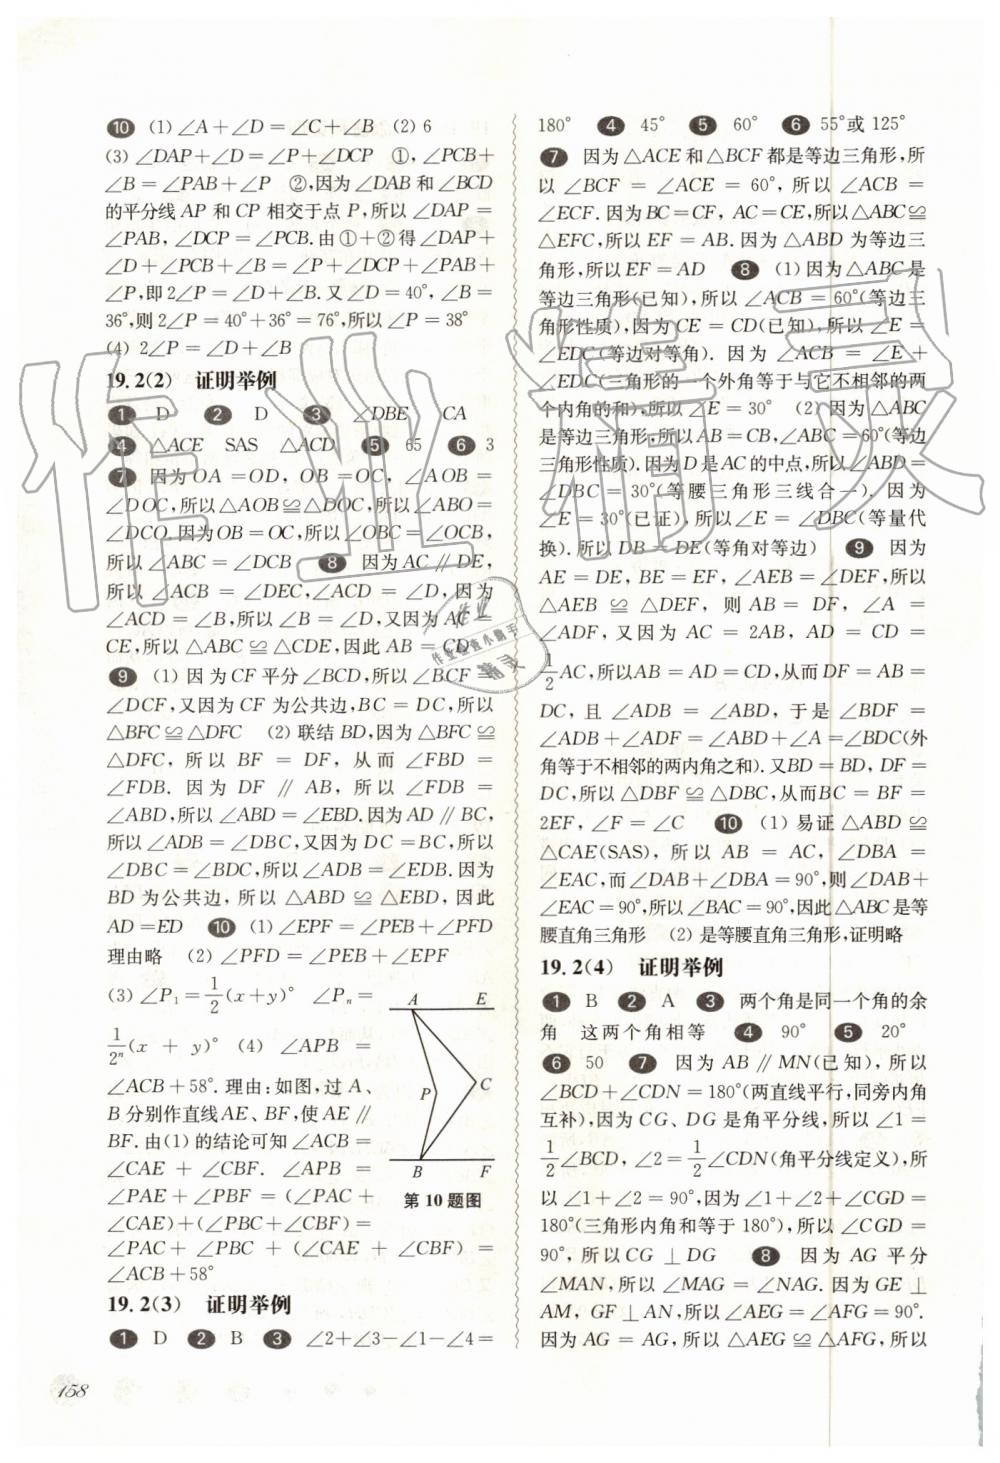 ⑩ (1) ∠A+∠D=∠C+∠B (2) 6
(3) ∠DAP+∠D=∠P+∠DCP ①，∠PCB+
∠B=∠PAB+∠P ②，因为∠DAB和∠BCD
的平分线 AP 和 CP 相交于点 P，所以∠DAP=
∠PAB，∠DCP=∠PCB. 由①+②得∠DAP+
∠D+∠PCB+∠B=∠P+∠DCP+∠PAB+
∠P，即2∠P=∠D+∠B. 又∠D=40°，∠B=
36°，则2∠P=40°+36°=76°，所以∠P=38°
(4) 2∠P=∠D+∠B
19.2(2) 证明举例
❶ D ❷ D ❸ ∠DBE CA
❹ △ACE SAS △ACD ❺ 65 ❻ 3
❼ 因为OA=OD，OB=OC，∠AOB=
∠DOC，所以△AOB≌△DOC，所以∠ABO=
∠DCO. 因为OB=OC，所以∠OBC=∠OCB，
所以∠ABC=∠DCB ❽ 因为AC∥DE，
所以∠ACB=∠DEC，∠ACD=∠D，因为
∠ACD=∠B，所以∠B=∠D，又因为AC=
CE，所以△ABC≌△CDE，因此AB=CD
❾ (1) 因为CF平分∠BCD，所以∠BCF=
∠DCF，又因为CF为公共边，BC=DC，所以
△BFC≌△DFC (2) 联结BD，因为△BFC≌
△DFC，所以BF=DF，从而∠FBD=
∠FDB. 因为DF∥AB，所以∠FDB=
∠ABD，所以∠ABD=∠EBD. 因为AD∥BC，
所以∠ADB=∠DBC，又因为DC=BC，所以
∠DBC=∠BDC，所以∠ADB=∠EDB. 因为
BD为公共边，所以△ABD≌△EBD，因此
AD=ED ❿ (1) ∠EPF=∠PEB+∠PFD
理由略 (2) ∠PFD=∠PEB+∠EPF
(3) ∠P₁=1/2(x+y)° ∠Pₙ=
1/2ⁿ(x+y)° (4) ∠APB=
∠ACB+58°. 理由：如图，过A、
B分别作直线AE、BF，使AE∥
BF. 由(1)的结论可知∠ACB=
∠CAE+∠CBF. ∠APB=
∠PAE+∠PBF=(∠PAC+
∠CAE)+(∠PBC+∠CBF)=
∠PAC+∠PBC+(∠CAE+∠CBF)=
∠ACB+58°
A E
P C
B F
第10题图
19.2(3) 证明举例
❶ D ❷ B ❸ ∠2+∠3−∠1−∠4=
158
180° ❹ 45° ❺ 60° ❻ 55°或125°
❼ 因为△ACE和△BCF都是等边三角形，所
以∠BCF=∠ACE=60°，所以∠ACB=
∠ECF. 因为BC=CF，AC=CE，所以△ABC≌
△EFC，所以EF=AB. 因为△ABD为等边三
角形，所以EF=AD ❽ (1) 因为△ABC是
等边三角形(已知)，所以∠ACB=60°(等边三
角形性质)，因为CE=CD(已知)，所以∠E=
∠EDC(等边对等角). 因为∠ACB=∠E+
∠EDC(三角形的一个外角等于与它不相邻的两
个内角的和)，所以∠E=30° (2) 因为△ABC
是等边三角形，所以AB=CB，∠ABC=60°(等边
三角形性质). 因为D是AC的中点，所以∠ABD=
∠DBC=30°(等腰三角形三线合一). 因为
∠E=30°(已证)，所以∠E=∠DBC(等量代
换). 所以DB=DE(等角对等边) ❾ 因为
AE=DE，BE=EF，∠AEB=∠DEF，所以
△AEB≌△DEF，则AB=DF，∠A=
∠ADF，又因为AC=2AB，AD=CD=
1/2AC，所以AB=AD=CD，从而DF=AB=
DC，且∠ADB=∠ABD，于是∠BDF=
∠ADB+∠ADF=∠ABD+∠A=∠BDC(外
角等于不相邻的两内角之和). 又BD=BD，DF=
DC，所以△DBF≌△DBC，从而BC=BF=
2EF，∠F=∠C ❿ (1) 易证△ABD≌
△CAE(SAS)，所以AB=AC，∠DBA=
∠EAC，而∠DAB+∠DBA=90°，则∠DAB+
∠EAC=90°，所以∠BAC=90°，因此△ABC是等
腰直角三角形 (2) 是等腰直角三角形，证明略
19.2(4) 证明举例
❶ B ❷ A ❸ 两个角是同一个角的余
角 这两个角相等 ❹ 90° ❺ 20°
❻ 50 ❼ 因为AB∥MN(已知)，所以
∠BCD+∠CDN=180°(两直线平行，同旁内角
互补)，因为CG、DG是角平分线，所以∠1=
1/2∠BCD，∠2=1/2∠CDN(角平分线定义)，所
以∠1+∠2=90°，因为∠1+∠2+∠CGD=
180°(三角形内角和等于180°)，所以∠CGD=
90°，所以CG⊥DG ❽ 因为AG平分
∠MAN，所以∠MAG=∠NAG. 因为GE⊥
AM，GF⊥AN，所以∠AEG=∠AFG=90°.
因为AG=AG，所以△AEG≌△AFG，所以
作业精灵
作业
作业检查小助手
精灵